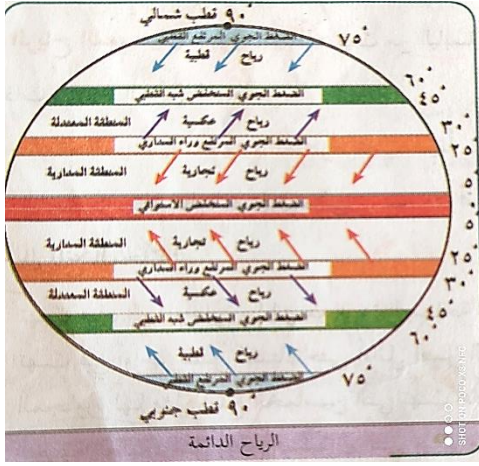 قطب شمالي ٩٠°
الضغط الجوي المرتفع القطبي
٧٥°
رياح قطبية
٦٠°
الضغط الجوي المنخفض شبه القطبي
٤٥°
المنطقة المعتدلة رياح عكسية
٣٠°
الضغط الجوي المرتفع وراء المداري
٢٥°
المنطقة المدارية رياح تجارية
٥°
الضغط الجوي المنخفض الاستوائي
٥°
المنطقة المدارية رياح تجارية
٢٥°
الضغط الجوي المرتفع وراء المداري
٣٠°
المنطقة المعتدلة رياح عكسية
٤٥°
الضغط الجوي المنخفض شبه القطبي
٦٠°
رياح قطبية
الضغط الجوي المرتفع القطبي
٧٥°
قطب جنوبي ٩٠°
الرياح الدائمة
SHOT ON POCO X3 NFC